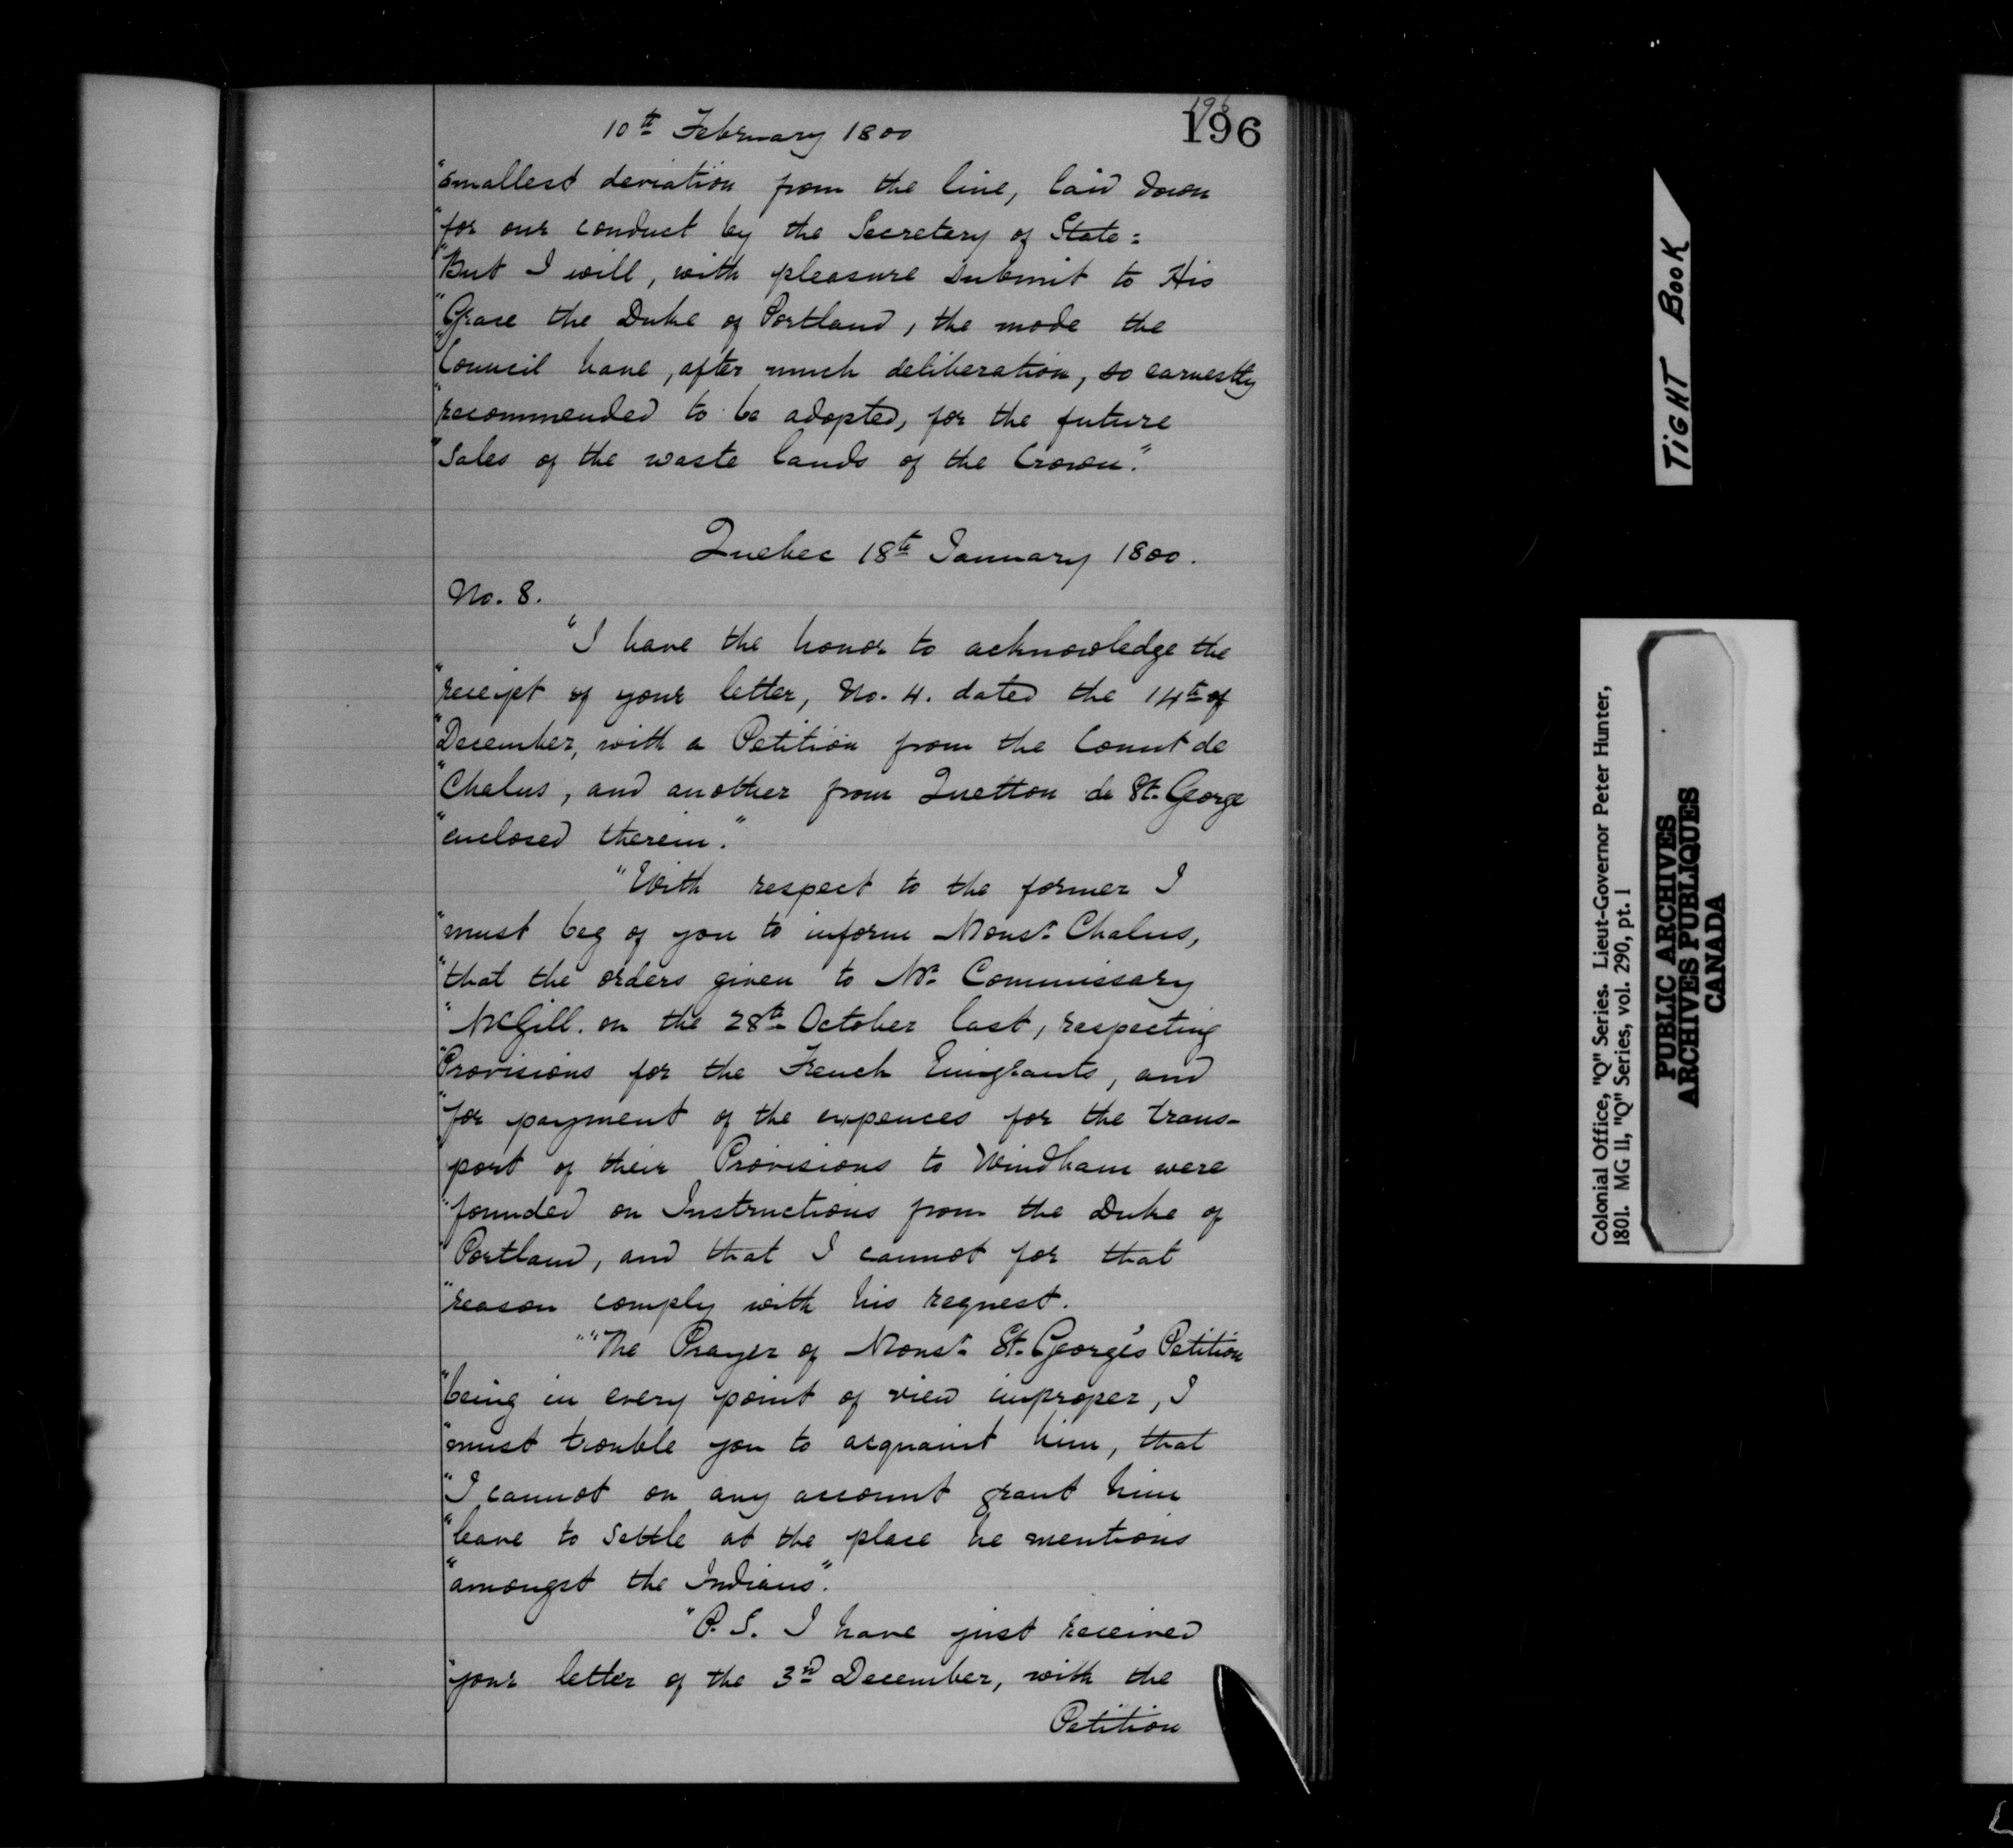 196
196
10th February 1800
"smallest deviation from the line, laid down
"for our conduct by the Secretary of State:
"But I will, with pleasure submit to His
"Grace the Duke of Portland, the mode the
"Council have, after much deliberation, so earnestly
"recommended to be adopted, for the future
"Sales of the waste lands of the Crown."
Quebec 18th January 1800.
No. 8.
"I have the honor to acknowledge the
"receipt of your letter, No. 4. dated the 14th of
"December, with a Petition from the Count de
"Chalus, and another from Quetton de St. George
"enclosed therein."
"With respect to the former I
"must beg of you to inform Monsr. Chalus,
"that the orders given to Mr. Commissary
"McGill. on the 28th October last, respecting
"Provisions for the French Emigrants, and
"for payment of the expences for the trans-
"port of their Provisions to Windham were
"founded on Instructions from the Duke of
"Portland, and that I cannot for that
"reason comply with his request.
""The Prayer of Monsr. St. George's Petition
"being in every point of view improper, I
"must trouble you to acquaint him, that
"I cannot on any account grant him
"leave to Settle at the place he mentions
"amongst the Indians".
"P. S. I have just received
"your letter of the 3rd December, with the
Petition
TIGHT BOOK
Colonial Office, "Q" Series. Lieut-Governor Peter Hunter,
1801. MG 11, "Q" Series, vol. 290, pt. 1
PUBLIC ARCHIVES
ARCHIVES PUBLIQUES
CANADA